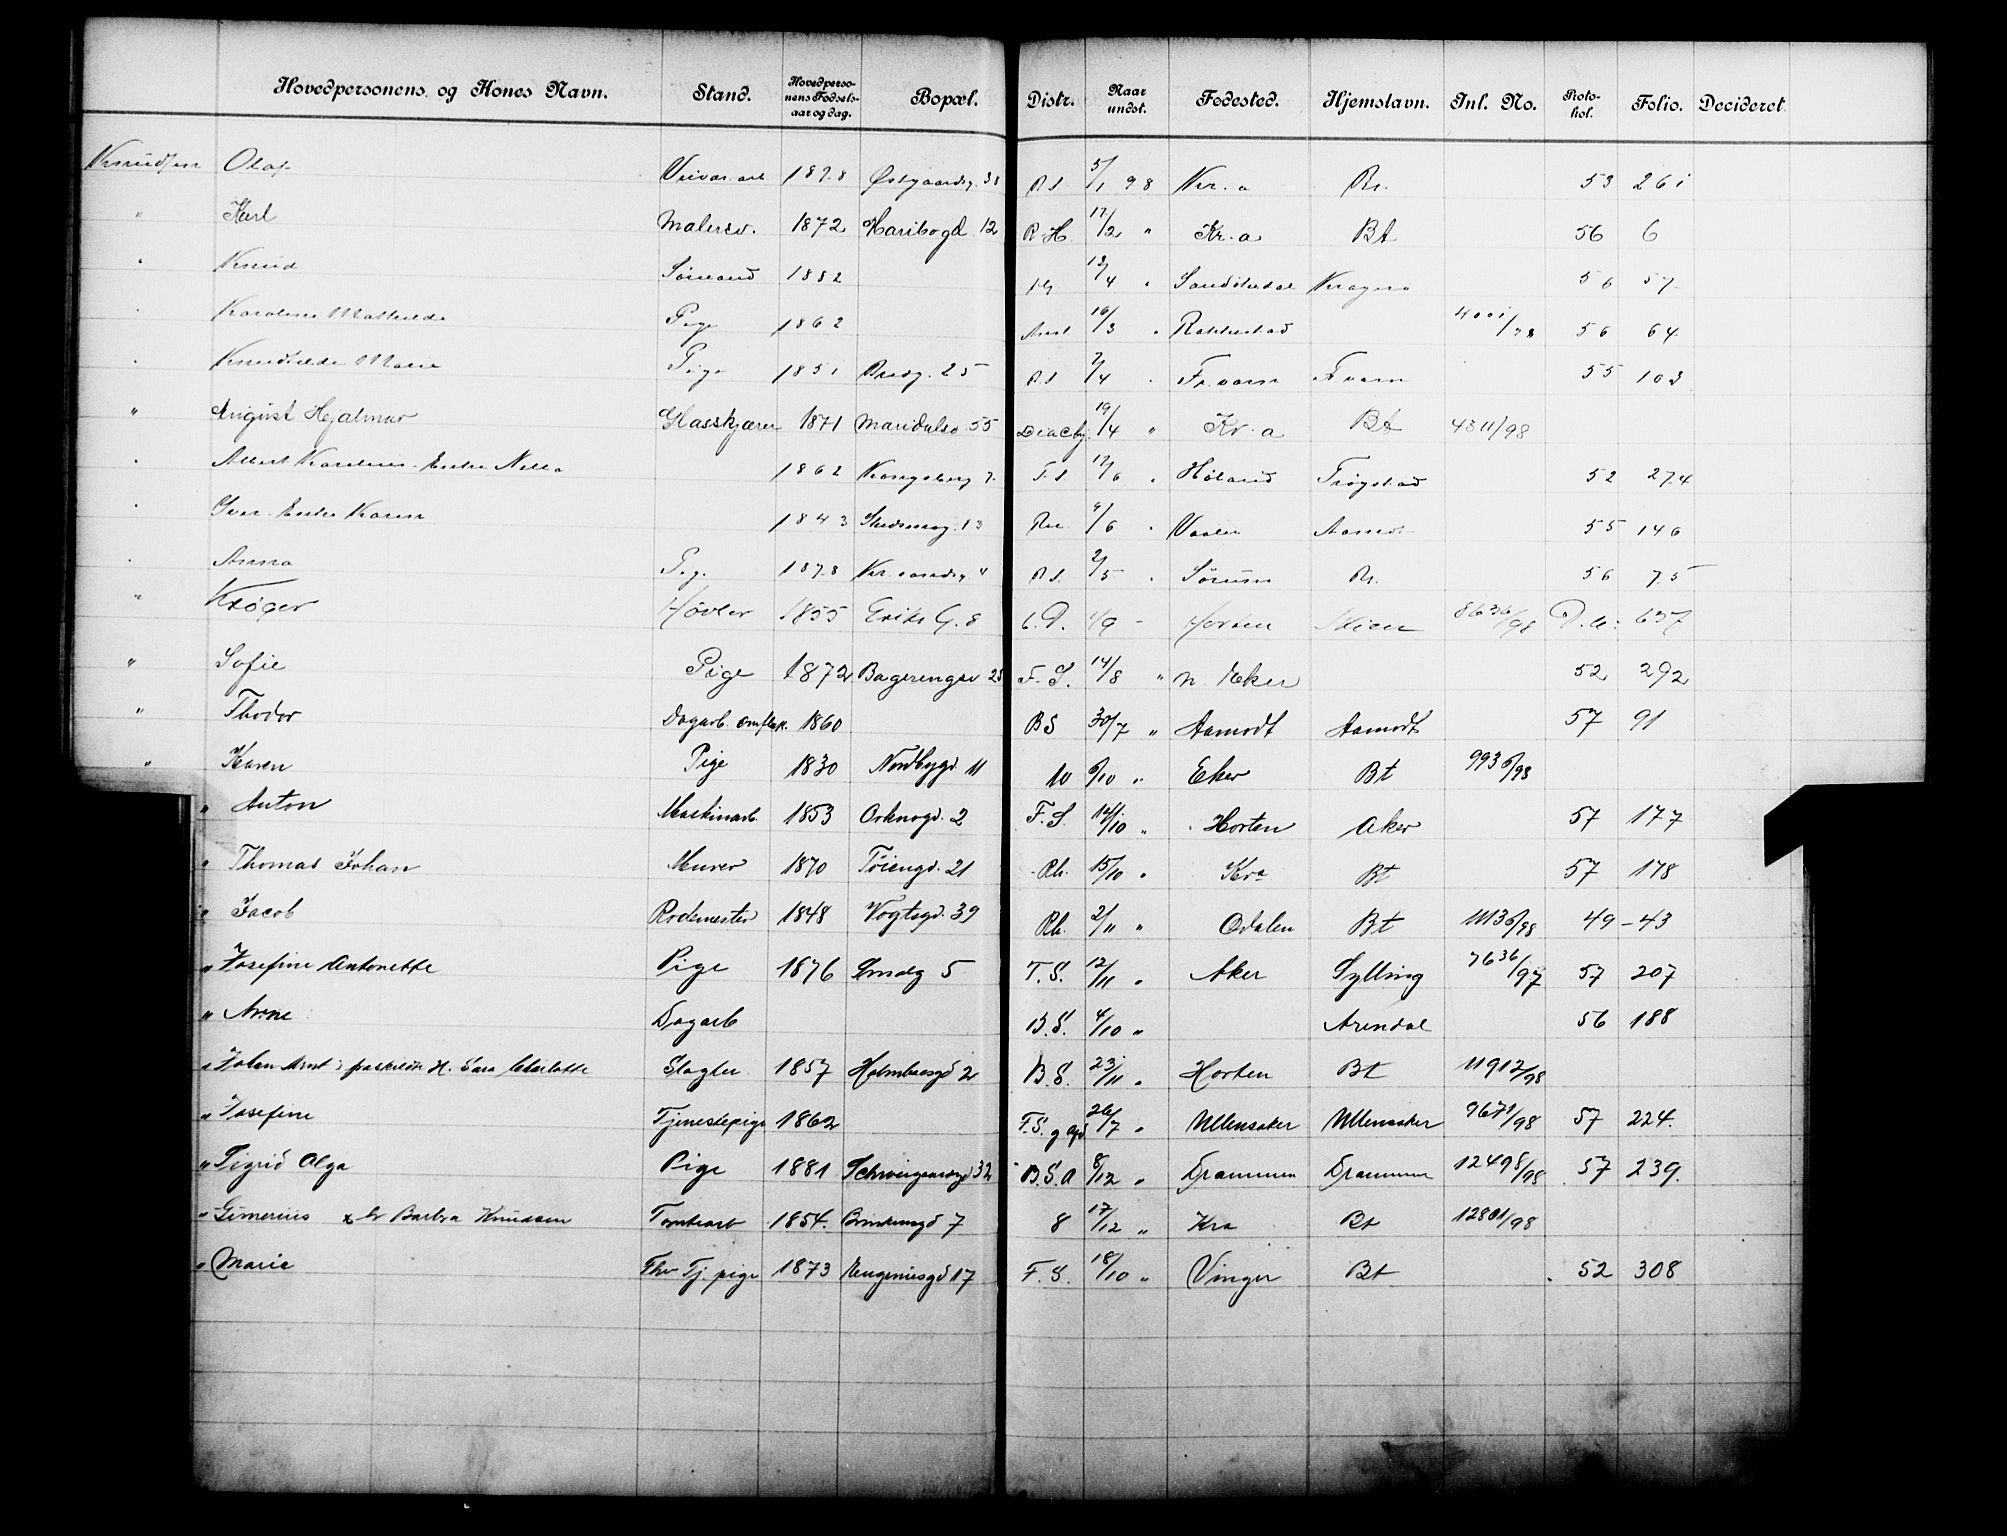 Hovedpersonens og Kones Navn. Stand. Hovedpersonens Fødselsaar og dag. Bopæl. Distr. Naar undst. Fødested. Hjemstavn. Inl. No. Protokol. Folio. Decideret.
Knudsen Olaf 1878 Østgaardsg. 38 R.S 5/1 98 Kr.a Bt. 53 261
" Karl Malersv. 1872 Haribogd. 12 R.H. 17/2 " Kr.a Bt 56 6
" Knud Sømand 1882 13/4 " Sandökedal Kragerø 56 57
" Karoline Mathilde Pige 1862 16/3 " Rakkestad 4001/98 56 64
" Marie Pige 1851 Bredg. 25 R.S 7/4 " Kvam 55 103
" August Hjalmar Glasskjærer 1871 Maridalsv. 55 19/4 " Kr.a Bt 4311/98
" Albert Karelius Enke 1862 Kongsberg 7 F.S 17/6 " Høland Trøgstad 52 274
" Iver Enke Karen 1843 13 9/6 " Vaaler 55 146
" Anna Pige 1878 4 R.S. 2/5 " Sørum Bt. 56 75
" Krøger Høvler 1855 Eriks G. 8 6.D. 1/9 - Horten Skien 8636/98 D.a. 637
" Sofie Pige 1872 Bagerengsv 25 F.S. 14/8 " N. Eker 52 292
" Thodor Dagarb. omflak. 1860 BS 30/7 " Aamodt Aamodt 57 91
" Karen Pige 1830 Nordbygd 11 10 6/10 " Eker Bt 9936/98
" Anton Maskinarb. 1853 Orknøgd. 2 F.S. 14/10 " Horten Aker 57 177
" Thomas Johan Murer 1870 Tøiengd. 21 Rh. 15/10 " Kra Bt 57 178
" Jacob Rodemester 1848 Vogtsgd. 39 Rh. 2/11 " Odalen Bt 11136/98 49 - 43
" Josefine Antonette Pige 1876 Smalg 5 F.S. 12/11 " Aker Sylling 7636/97 57 207
" Arne Dagarb B.S. 4/10 " Arendal 56 188
" Johan Arnt, fraskilt H. Sara Charlotte Slagter 1857 Holmboesgd 2 B.S. 23/11 " Horten Bt 11912/98
" Josefine Tjenestepige 1862 F.S. 26/7 " Ullensaker Ullensaker 9671/98 57 224.
" Sigrid Olga Pige 1881 Schweigaardsgd 32 B.S.A 8/12 " Drammen Drammen 12498/98 57 239.
" Gimerius Barbra Knudsen Tomtearb 1854. Brinkensgd 7 8 17/12 " Kra Bt 12801/98
" Marie Tj. pige 1873 Eugeniesgd 17 F.S. 18/10 " Vinger Bt 52 308